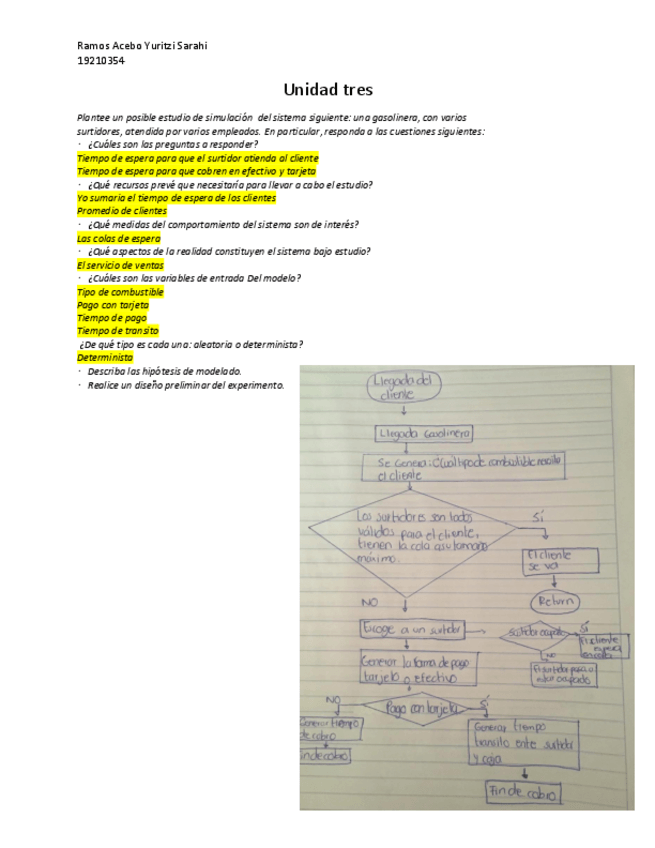 Ramos Acebo Yuritzi Sarahi
19210354
Unidad tres
Plantee un posible estudio de simulación del sistema siguiente: una gasolinera, con varios
surtidores, atendida por varios empleados. En particular, responda a las cuestiones siguientes:
· ¿Cuáles son las preguntas a responder?
Tiempo de espera para que el surtidor atienda al cliente
Tiempo de espera para que cobren en efectivo y tarjeta
· ¿Qué recursos prevé que necesitaría para llevar a cabo el estudio?
Yo sumaria el tiempo de espera de los clientes
Promedio de clientes
· ¿Qué medidas del comportamiento del sistema son de interés?
Las colas de espera
· ¿Qué aspectos de la realidad constituyen el sistema bajo estudio?
El servicio de ventas
· ¿Cuáles son las variables de entrada Del modelo?
Tipo de combustible
Pago con tarjeta
Tiempo de pago
Tiempo de transito
¿De qué tipo es cada una: aleatoria o determinista?
Determinista
· Describa las hipótesis de modelado.
· Realice un diseño preliminar del experimento.
Llegada del
cliente
Llegada Gasolinera
Se Genera: Cual tipo de combustible necesita
el cliente
Los surtidores son todos
válidos para el cliente,
tienen la cola a su tamaño
máximo.
Sí
El cliente
se va
Return
NO
Escoge a un surtidor
Surtidor ocupado
Sí
El cliente
espera
NO
El surtidor pasa a
estar ocupado
Generar la forma de pago
tarjeta o efectivo
Pago con tarjeta
NO
Sí
Generar tiempo
de cobro
Fin de cobro
Generar tiempo
transito entre surtidor
y caja
Fin de cobro